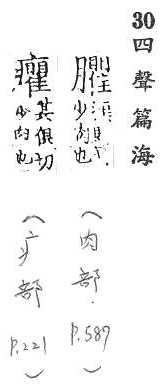 30 四聲篇海
少肉也
(肉部 P.587)
癯 其俱切
少肉也
(疒部 P.221)